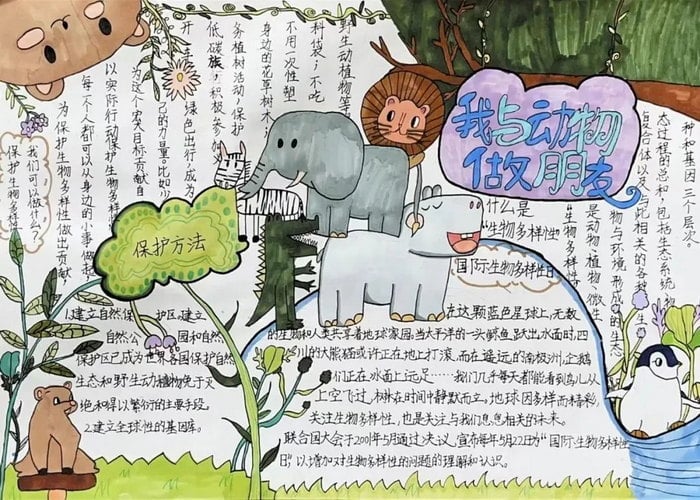 我与动物
做朋友
保护生物多样性
我们可以做什么?
为保护生物多样性做出贡献,
每个人都可以从身边的小事做起,
以实际行动保护生物多样性
为这个宏大目标贡献自
己的力量。比如少
开
绿色出行,成为
低碳族,积极参
务植树活动,保护
身边的花草树木
不用一次性塑
料袋;不吃
野生动植物等
什么是
“生物多样性”
“生物多样性”
是动物植物微生
物与环境形成的生态
复合体以及与此相关的各种生
态过程的总和,包括生态系统、物
种和基因三个层次。
保护方法
1.建立自然保护区,建立
自然公园和自然
保护区已成为世界各国保护自然
生态和野生动植物免于灭
绝和得以繁衍的主要手段。
2.建立全球性的基因库。
国际生物多样性日
在这颗蓝色星球上,无数
的生物和人类共享着地球家园。当太平洋的一头鲸鱼跃出水面时,四
川的大熊猫或许正在地上打滚,而在遥远的南极洲,企鹅
们正在水面上远足……我们几乎每天都能看到鸟儿从
上空飞过,树林在时间中静默而立。地球因多样而精彩,
关注生物多样性,也是关注与我们息息相关的未来。
联合国大会于2001年5月通过决议,宣布每年5月22日为“国际生物多样性
日”以增加对生物多样性的问题的理解和认识。